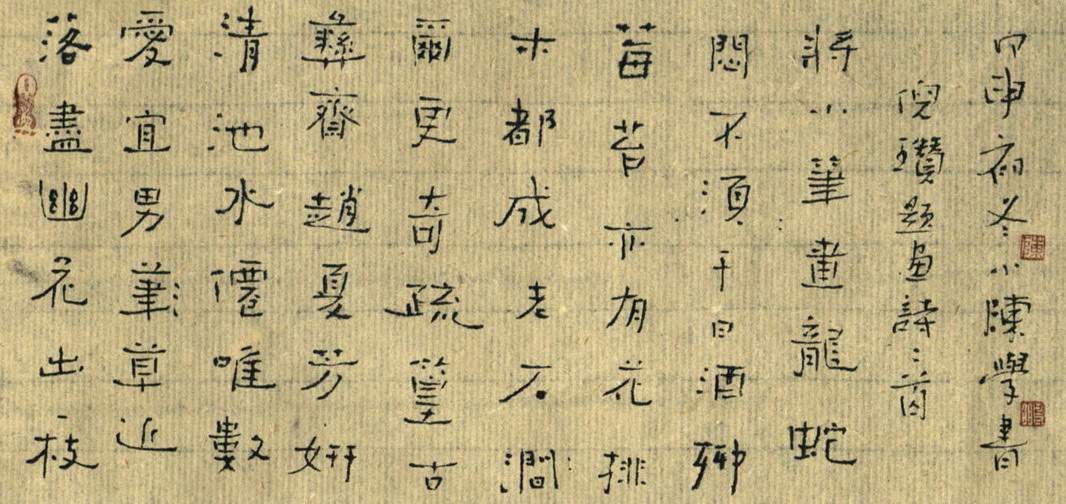 落盡幽花出枝
愛宜男筆草近
清池水僊唯數
彝齋趙夏芳妍
爾更奇疏篁古
木都成老石澗
莓苔亦有花排
悶不須千日酒聊
將小筆畫龍蛇
倪瓚題畫詩二首
甲申初冬小陳學書